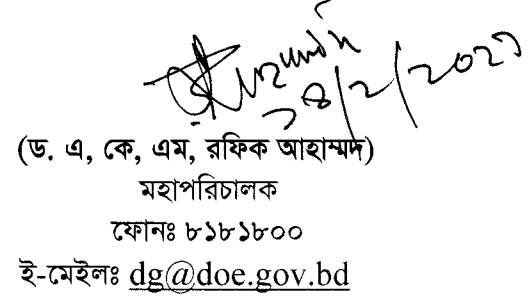 ১৪/২/২০২১
(ড. এ, কে, এম, রফিক আহাম্মদ)
মহাপরিচালক
ফোনঃ ৮১৮১৮০০
ই-মেইলঃ dg@doe.gov.bd